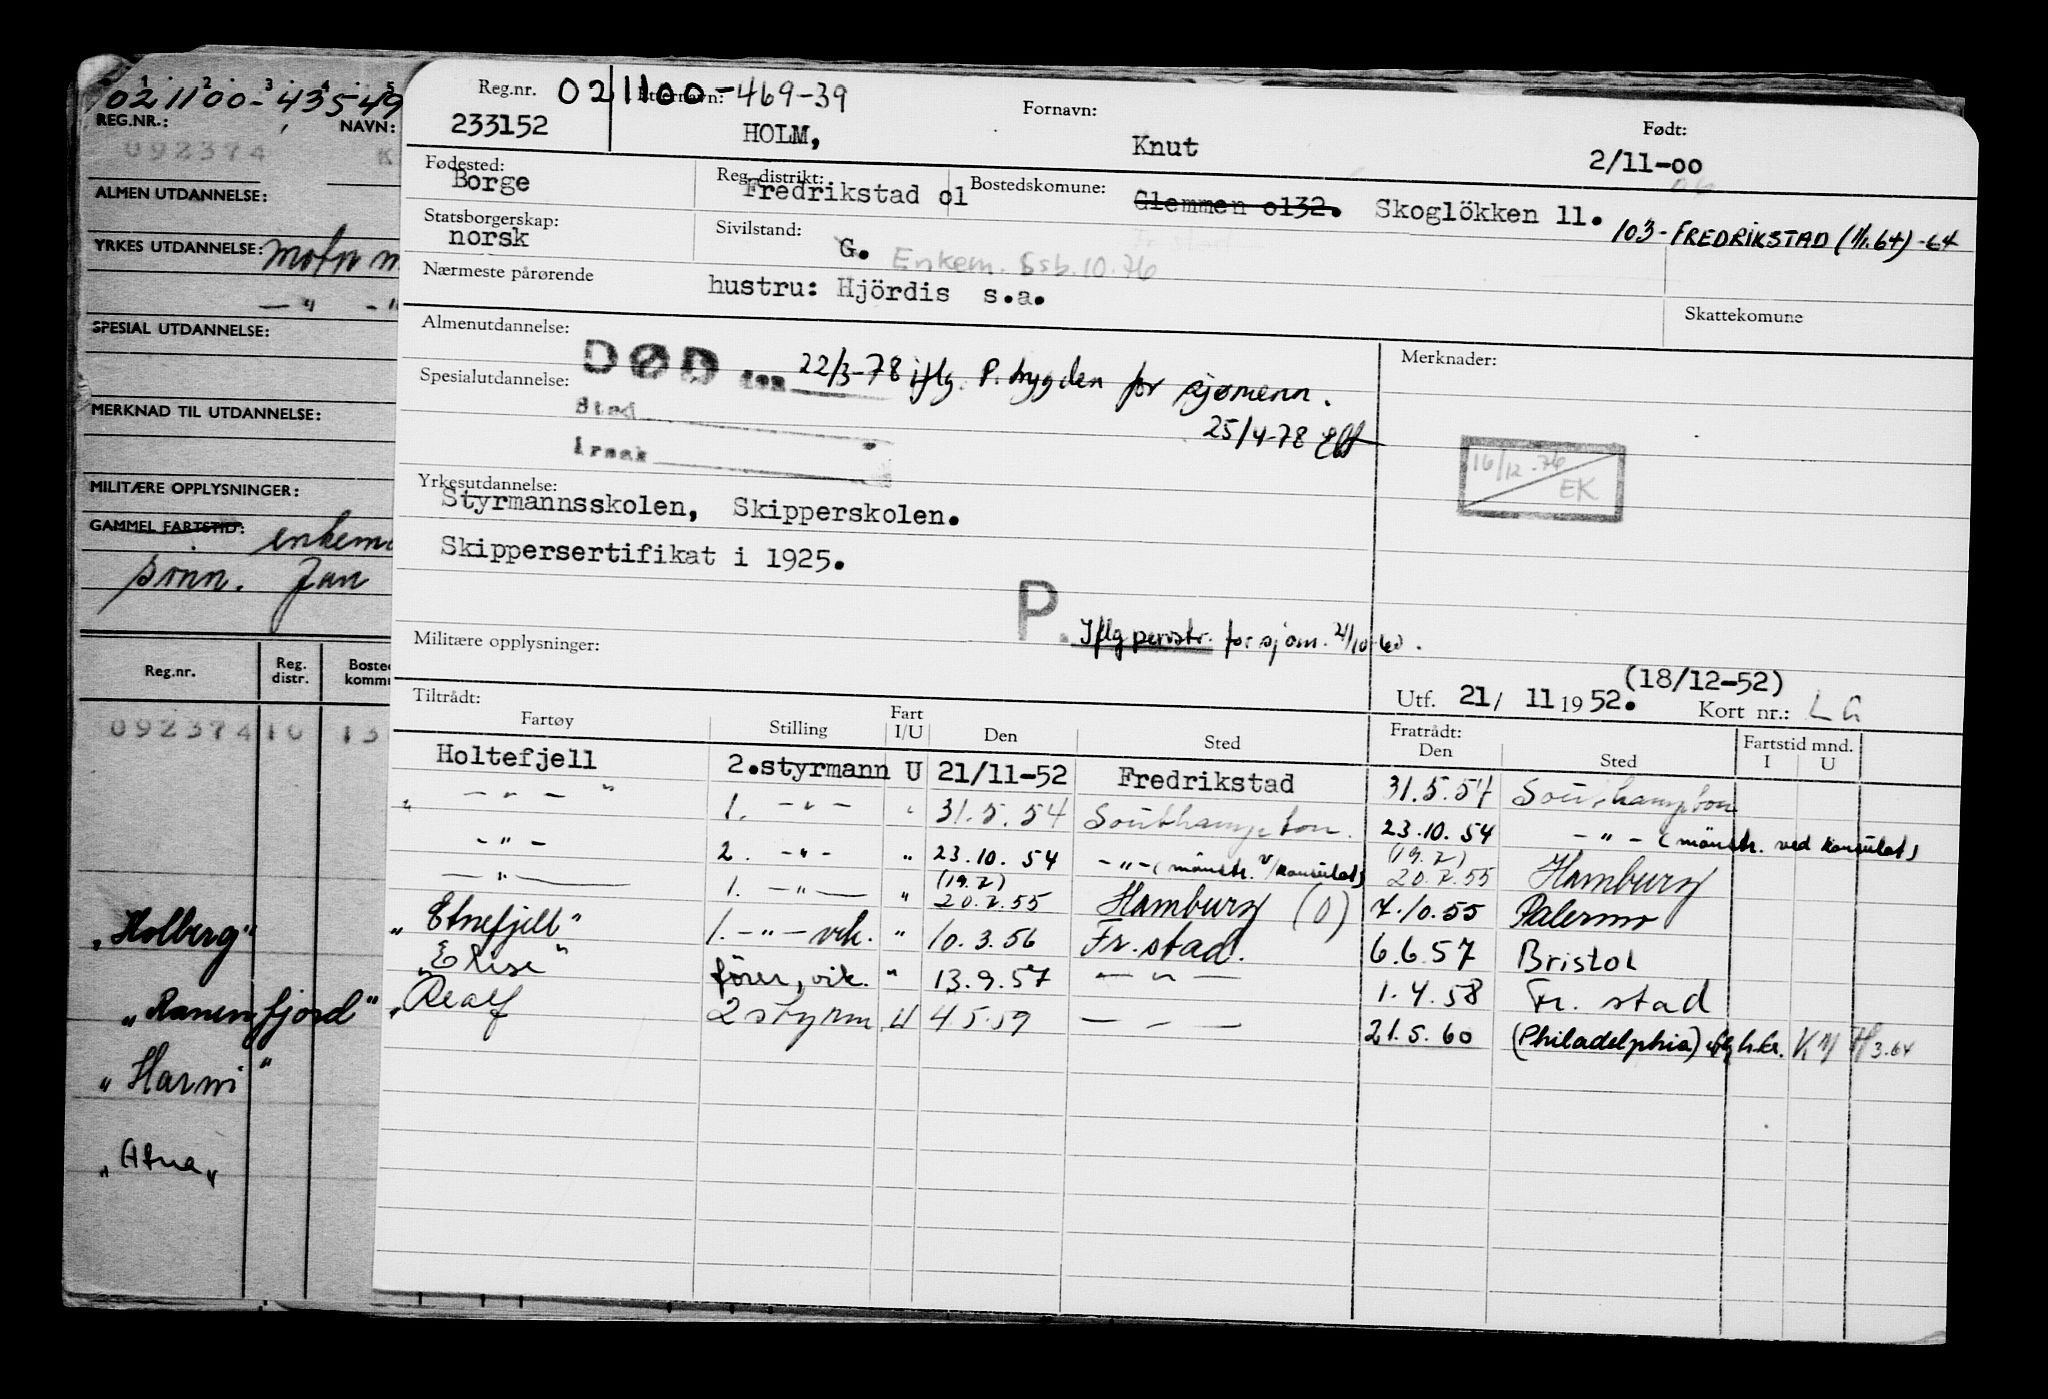 021100-43549
REG.NR.: NAVN:
092374 K
ALMEN UTDANNELSE:
YRKES UTDANNELSE: motor m
— " - "
SPESIAL UTDANNELSE:
MERKNAD TIL UTDANNELSE:
MILITÆRE OPPLYSNINGER:
GAMMEL FARTSTID: enkem
sønn. Jan
Reg.nr. Reg. distr. Bosted komm
092374 10 13
"Holberg"
"Ranenfjord"
"Harwi"
"Atna"
Reg.nr. 021100-469-39 Etternavn: Fornavn: Født:
233152 HOLM, Knut 2/11-00
Fødested: Reg. distrikt: Bostedskomune:
Borge Fredrikstad 01 Glemmen 0132. Skoglökken 11. 103-FREDRIKSTAD (1/1.64)-64
Statsborgerskap: Sivilstand:
norsk G. Enkem. Ssb.10.76
Nærmeste pårørende hustru: Hjördis s.a.
Skattekomune
Almenutdannelse: Merknader:
DØD den 22/3-78 iflg. P. trygden for sjømenn.
Spesialutdannelse:
Sted 25/4-78
Årsak
16/12-76 EK
Yrkesutdannelse:
Styrmannsskolen, Skipperskolen.
Skippersertifikat i 1925.
P. Iflg penstr. for sjøm. 21/10-60.
Militære opplysninger:
(18/12-52)
Utf. 21/ 11 1952. Kort nr.: LG
Tiltrådt: Fratrådt: Fartstid mnd.
Fartøy Stilling Fart I/U Den Sted Den Sted I U
Holtefjell 2.styrmann U 21/11-52 Fredrikstad 31.5.54 Southampton
" — " — " 1. — " — " 31.5.54 Southampton. 23.10.54 — " — (mönstr. ved konsulat)
— " — 2. — " — " 23.10.54 — " — (mönstr. v/konsulat) (19.7) 20.7.55 Hamburg
— " — 1. — " — " (19.7) 20.7.55 Hamburg (0) 7.10.55 Palermo
"Etnefjell" 1. — " — vik. " 10.3.56 Fr.stad. 6.6.57 Bristol
"Elise" förer, vik. " 13.9.57 — " — 1.4.58 Fr. stad
"Realf 2 styrm U 4 5.59 — " — 21.5.60 (Philadelphia) iflg h.kr. 3.64